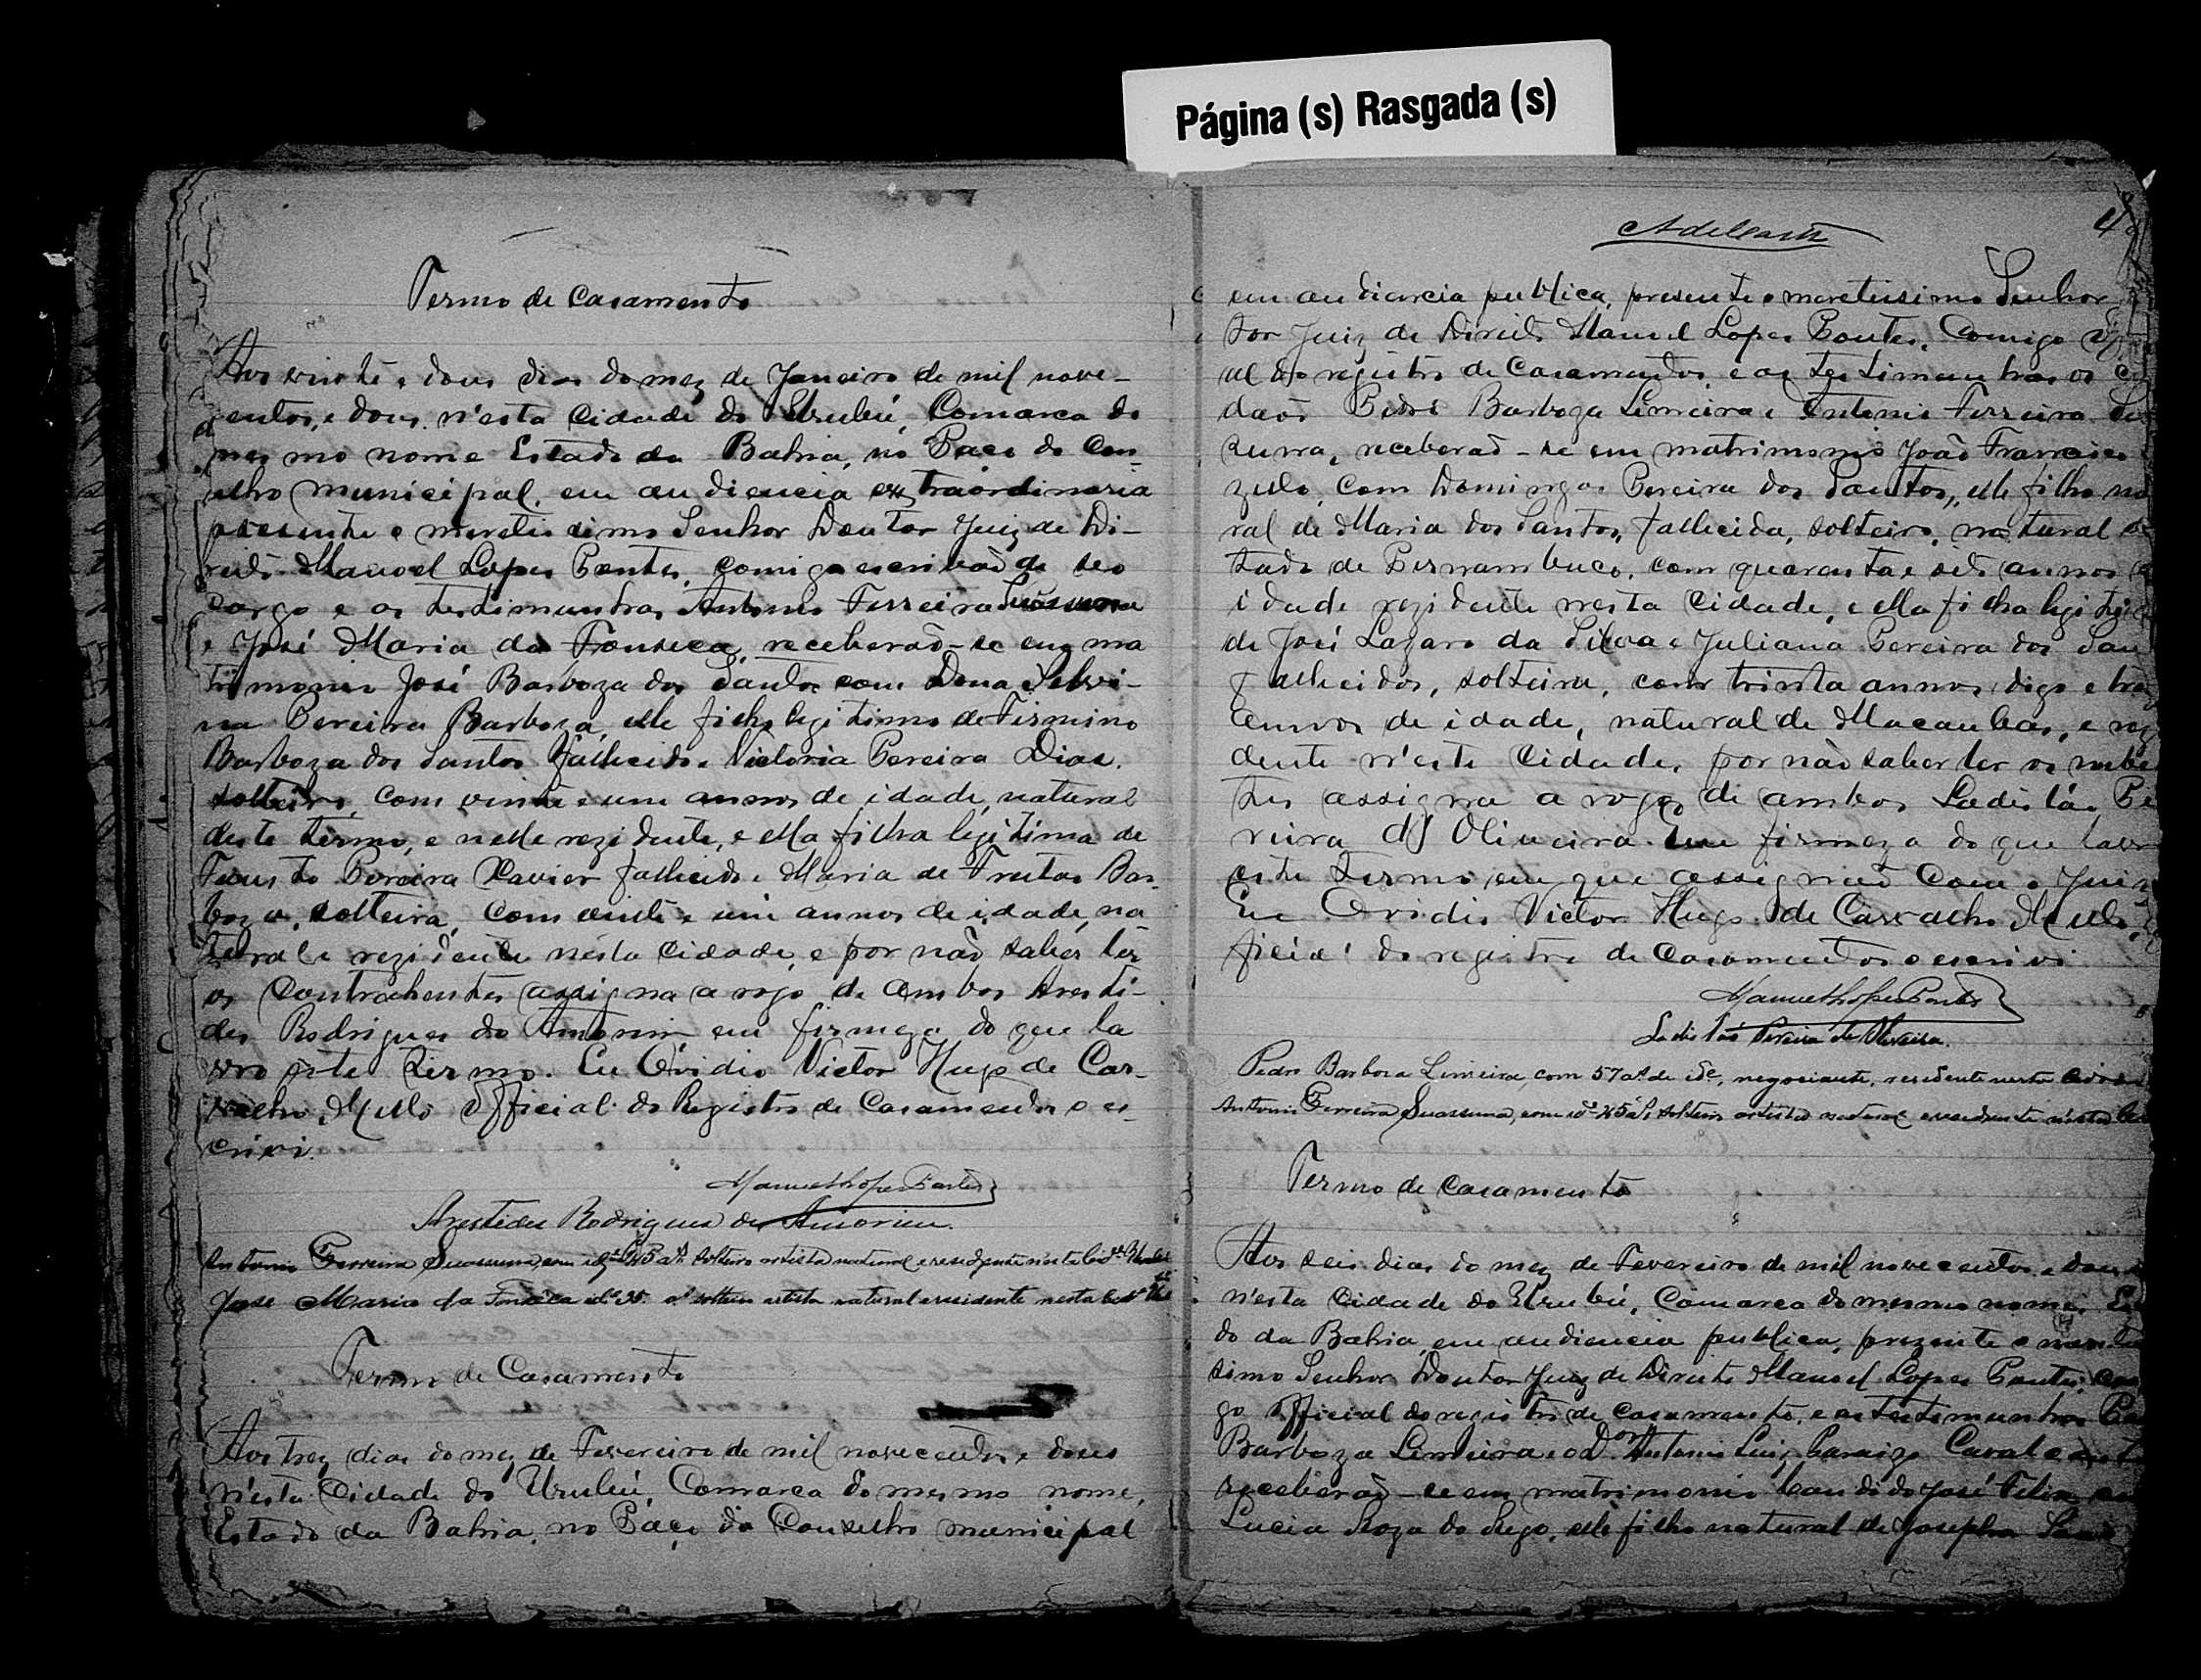 Página (s) Rasgada (s)
Termo de Casamento
Aos vinte e dous dias do mez de Janeiro de mil nove-
centos, e dous, n'esta Cidade do Urubú, Comarca do
mesmo nome Estado da Bahia, no Paço do Con-
selho municipal, em audiencia extraordinaria
presente o meretissimo Senhor Doutor Juiz de Di-
reito Manoel Lopes Pontes, comigo escrivaõ de seo
cargo e as testimunhas Antonio Ferreira Suassuna
e José Maria da Fonseca, receberaõ-se em ma
trimonio José Barboza dos Santos com Dona Silvi-
na Pereira Barboza, elle filho legitimo de Firmino
Barboza dos Santos fallecido e Victoria Pereira Dias,
solteiro, com vinte e um annos de idade, natural
deste termo, e nelle rezidente, e ella filha legitima de
Fausto Pereira Xavier fallecido e Maria de Freitas Bar-
boza, solteira, com vinte e um annos de idade, na
tural e rezidente nésta Cidade, e por naõ saber ler
os Contrahentes assigna a rogo de ambos Aresti-
des Rodrigues do Amorim em firmeza do que la
vro este Termo. Eu Ovidio Victor Hugo de Car-
valho Mello Official do Registro de Casamentos o es-
crivi.
Manuel Lopes Pontes
Arestides Rodrigues de Amorim.
Antonio Ferreira Suassuna, com 45 solteiro artista natural e residente nesta
José Maria da Fonseca solteiro artista natural e residente nesta
Termo de Casamento
Aos trez dias do mez de Fevereiro de mil novecentos e dous
n'esta Cidade do Urubú, Comarca do mesmo nome,
Estado da Bahia, no Paço do Conselho municipal
em audiencia publica, presente o meretissimo Senhor
tor Juiz de Direito Manoel Lopes Pontes, Comigo
al do registro de Casamentos, e as testimunhas os
daõs Pedro Barboza Limeira e Antonio Ferreira
suna, receberaõ-se em matrimonio Joaõ Francisco
zulo, com Domingas Pereira dos Santos, elle filho
ral de Maria dos Santos, fallecida, solteiro, natural
tado de Pernambuco, com quarenta e annos
idade rezidente nesta Cidade, e ella filha
de José Lazaro da Silva e Juliana Pereira dos
fallecidos, solteira, com trinta annos, digo e
annos de idade, natural de Macaubas, e
dente n'esta Cidade, por não saber ler os
tes assigna a rogo de ambos Ladisláo
reira de Oliveira. Em firmeza do que
este Termo em que assignaõ com o Juiz
Eu Ovidio Victor Hugo de Carvalho Mello,
ficial do registro de Casamentos o escrivi
Manuel Lopes Pontes
Ladisláo Pereira de Oliveira.
Pedro Barboza Limeira com 57 de negociante, residente nesta
Antonio Ferreira Suassuna, com 45 solteiro artista natural e residente nesta
Termo de Casamento
Aos seis dias do mez de Fevereiro de mil novecentos e dous
n'esta Cidade do Urubú, Comarca do mesmo nome,
do da Bahia, em audiencia publica, prezente o
simo Senhor Doutor Juiz de Direito Manoel Lopes Pontes,
go Official do registro de casamento, e as testimunhas
Barboza Limeira e o Dor Antonio Luiz
receberaõ-se em matrimonio Candido José Felix
Lucia Roza do Rego, elle filho natural de Josepha